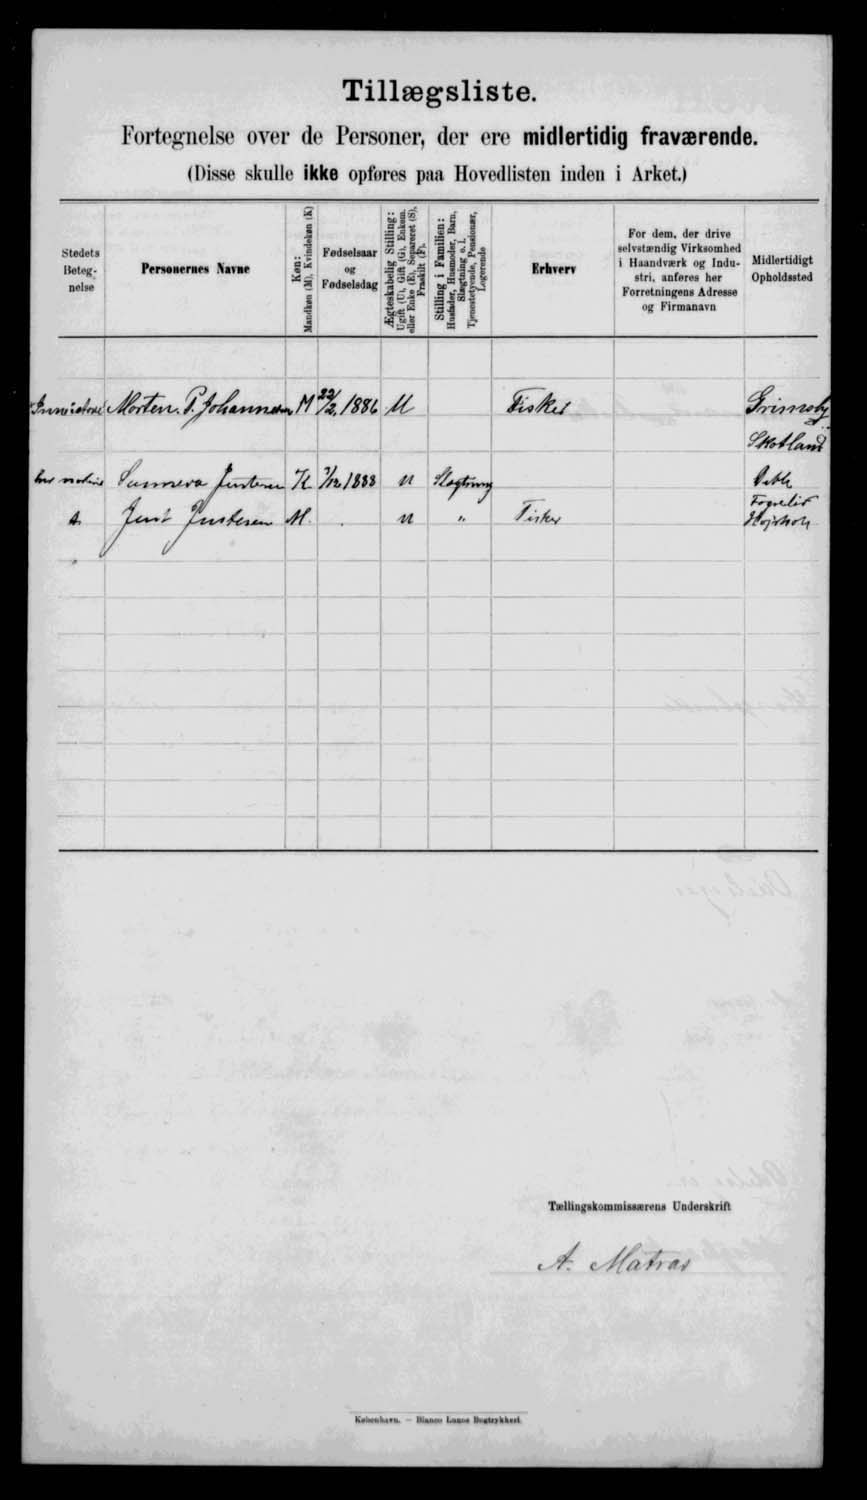 Tillægsliste.
Fortegnelse over de Personer, der ere midlertidig fraværende.
(Disse skulle ikke opføres paa Hovedlisten inden i Arket.)
Stedets Beteg- nelse
Personernes Navne
Køn: Mandkøn (M), Kvindekøn (K)
Fødselsaar og Fødselsdag
Ægteskabelig Stilling: Ugift (U), Gift (G), Enkem. eller Enke (E), Separeret (S), Fraskilt (F).
Stilling i Familien: Husfader, Husmoder, Barn, Slægtning o. l. Tjenestetyende, Pensionær, Logerende
Erhverv
For dem, der drive selvstændig Virksomhed i Haandværk og Indu- stri, anføres her Forretningens Adresse og Firmanavn
Midlertidigt Opholdssted
Morten. P. Johannesen M 22/2 1886 U Fisker Grimsby
Skotland
Sunneva Justesen K 7/12 1888 U Slægtning
Just Justesen M. U " Fisker
Tællingskommissærens Underskrift
A. Matras
København. — Bianco Lunos Bogtrykkeri.